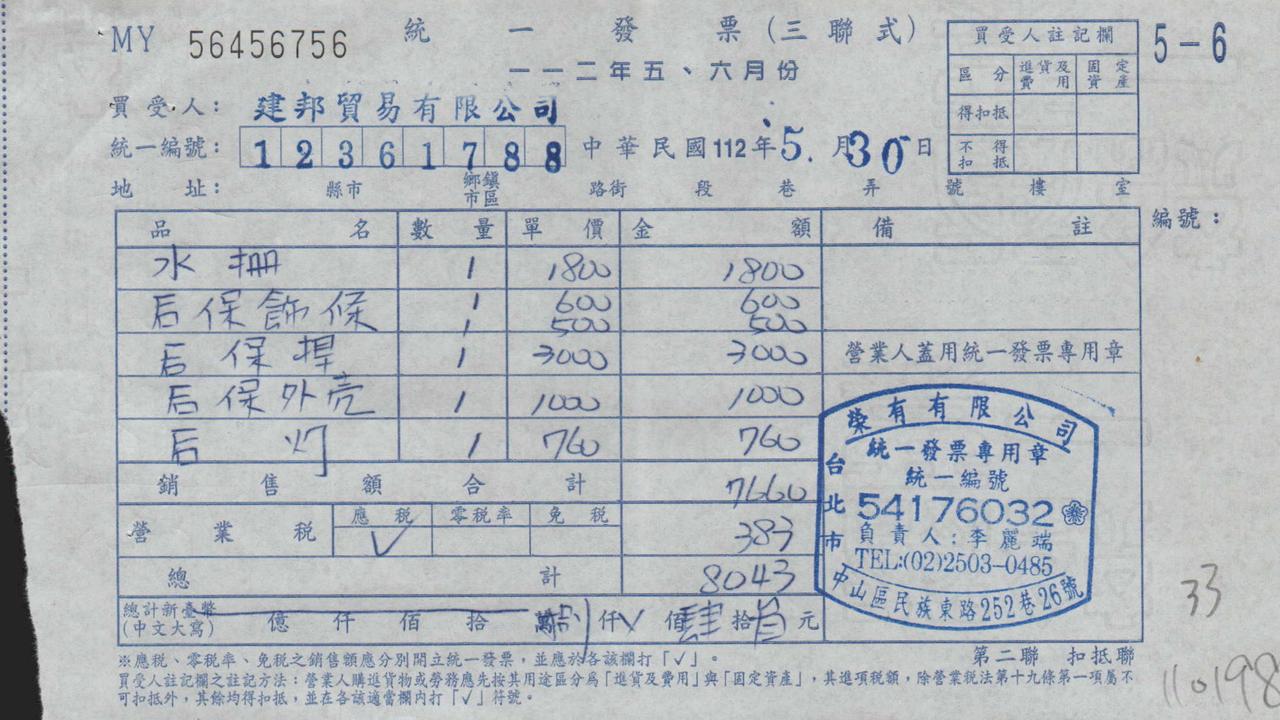 MY 56456756
統一發票(三聯式)
一一二年五、六月份
5-6
買受人註記欄
區分 進貨及費用 固定資產
得扣抵
不得扣抵
買受人: 建邦貿易有限公司
統一編號: 12361788 中華民國112年5.月30日
地址: 縣市 鄉鎮市區 路街 段 巷 弄 號 樓 室
編號:
品名 數量 單價 金額 備註
水 1 1800 1800
后保飾條 1 600 600
1 500 500
后保捍 1 3000 3000
后保外壳 1 1000 1000
后灯 1 760 760
營業人蓋用統一發票專用章
銷售額合計 7660
營業稅 應稅 ✓ 零稅率 免稅 383
總計 8043
總計新臺幣(中文大寫) 億 仟 佰 拾 萬 仟 佰肆拾 元
榮有有限公司
統一發票專用章
統一編號
54176032
負責人:李麗端
TEL:(02)2503-0485
台北市中山區民族東路252巷26號
33
※應稅、零稅率、免稅之銷售額應分別開立統一發票,並應於各該欄打「✓」。
第二聯 扣抵聯
買受人註記欄之註記方法:營業人購進貨物或勞務應先按其用途區分為「進貨及費用」與「固定資產」,其進項稅額,除營業稅法第十九條第一項屬不
可扣抵外,其餘均得扣抵,並在各該適當欄內打「✓」符號。
110198